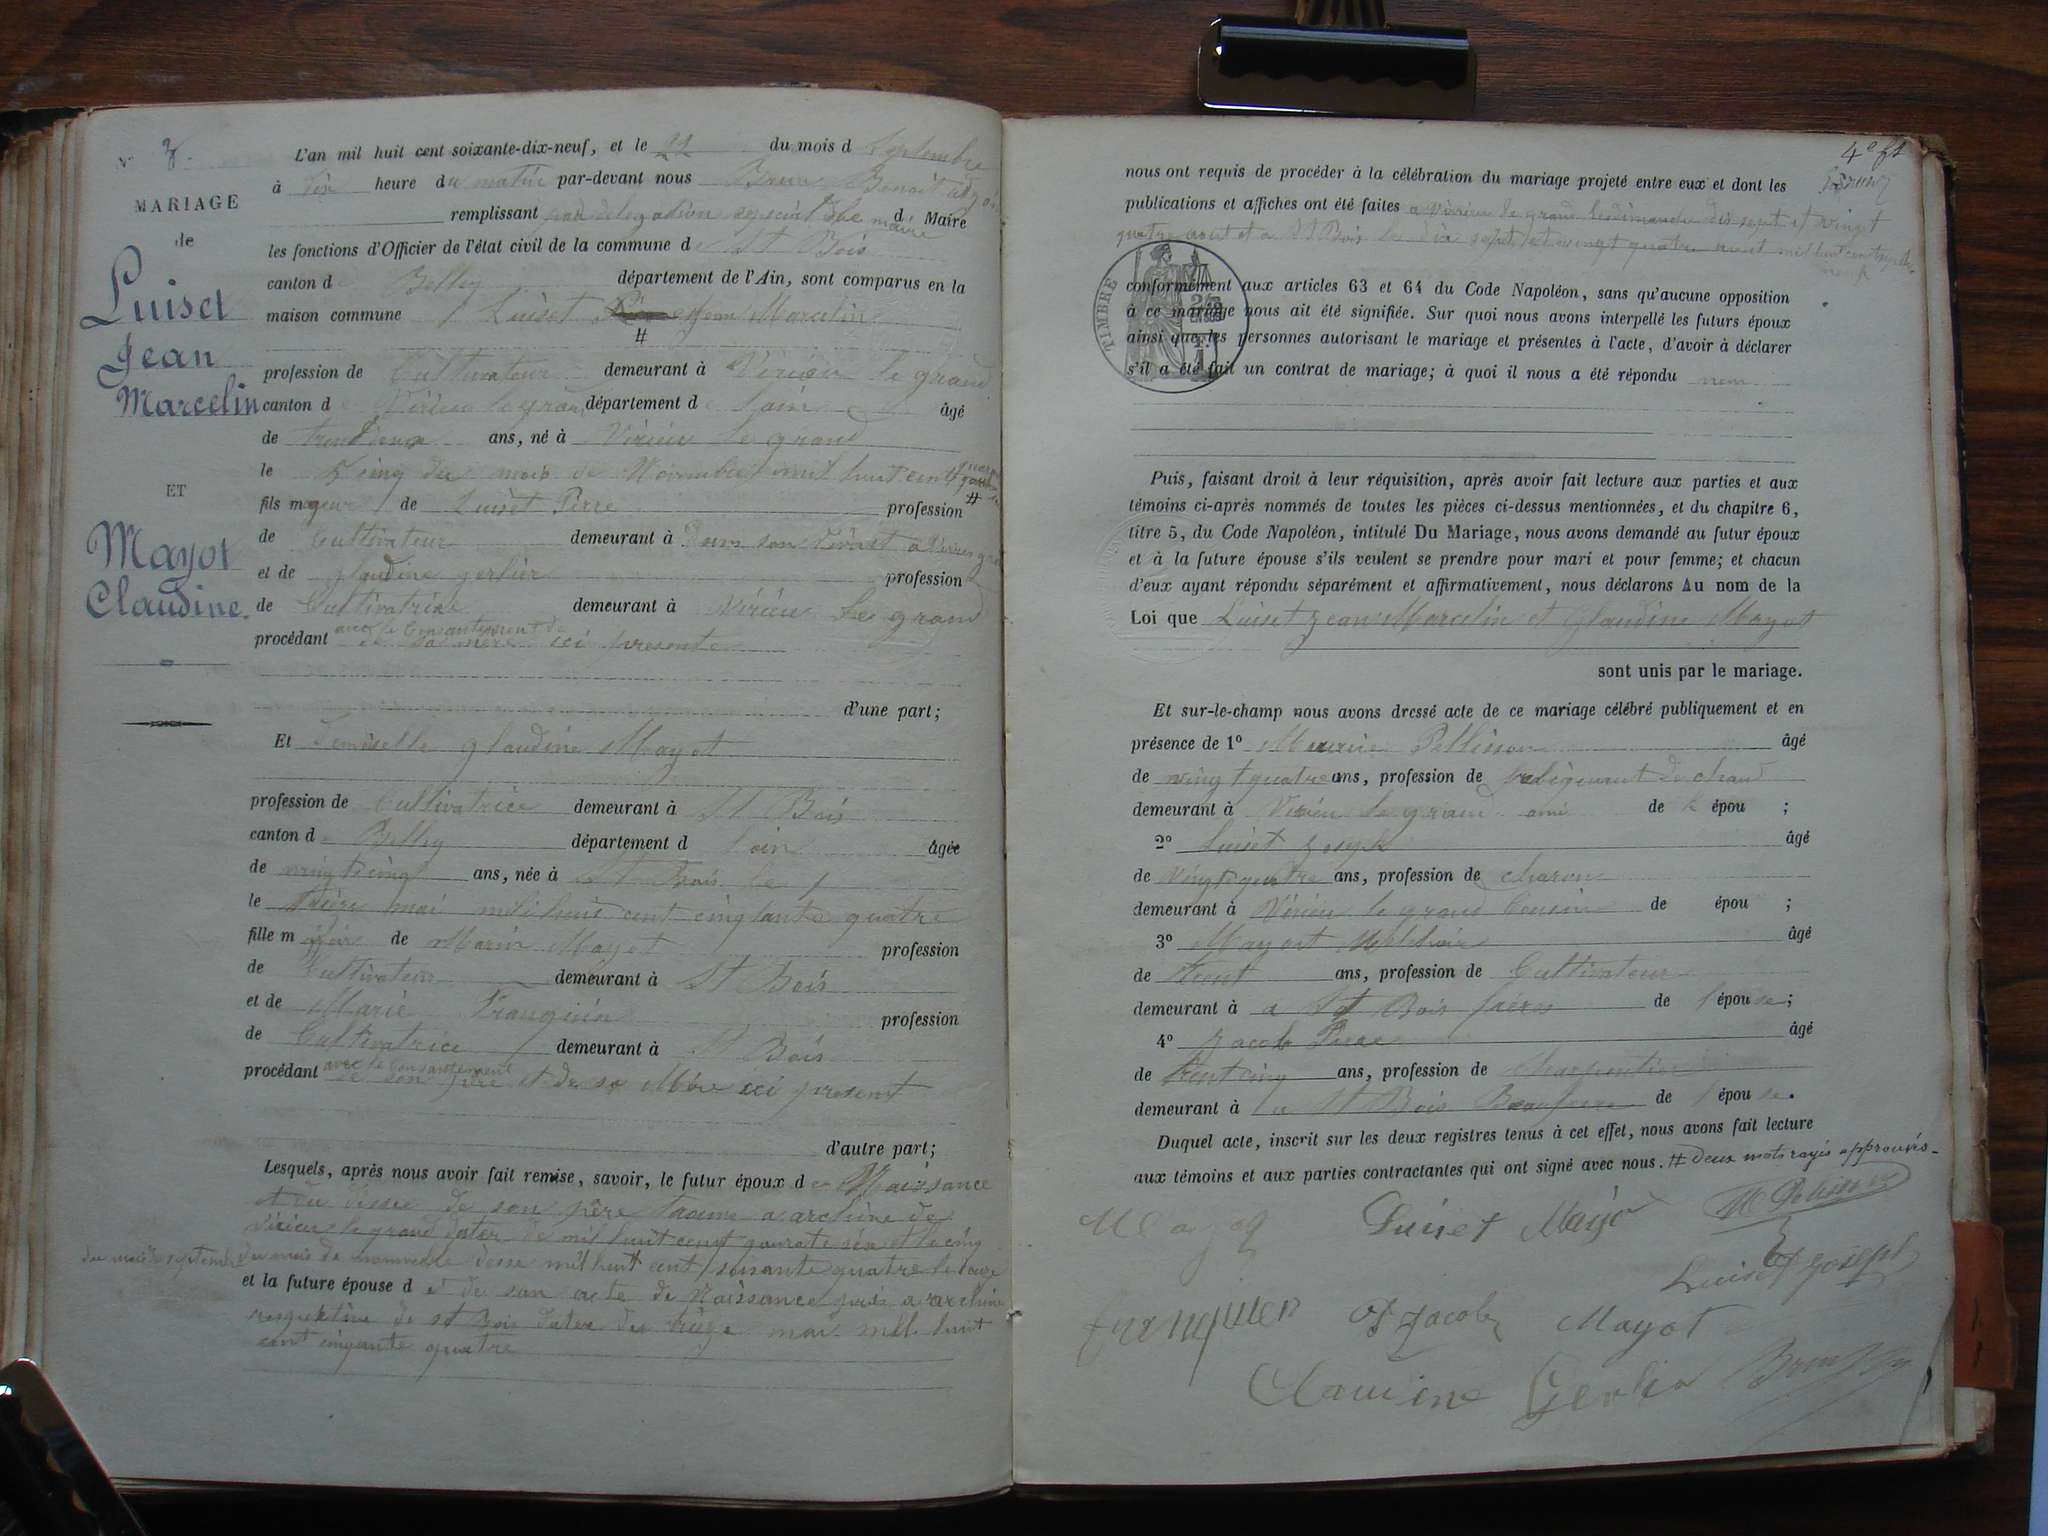 MARIAGE
de
Luiset
Jean
Marcelin
ET
Mayot
Claudine.
L'an mil huit cent soixante-dix-neuf, et le du mois d Septembre
à dix heure du matin par-devant nous Brun Benoit adjoint
remplissant par délégation special de d Maire
maire
les fonctions d'Officier de l'état civil de la commune d St Bois
canton d Belley département de l'Ain, sont comparus en la
maison commune Luiset Jean Marcelin
profession de Cultivateur demeurant à Virieu le grand
canton de Virieu le grand département d lain âgé
de trentdeux ans, né à Virieu le grand
le cinq du mois de Novembre mil huit cent
fils majeur de Luiset Pirre profession
de Cultivateur demeurant à a Virieu
et de glaudine gerlier profession
de Cultivatrice demeurant à Virieu le grand
procédant avec le Consentement de
sa mère ici presente
d'une part;
Et Demiselle glaudine Mayot
profession de Cultivatrice demeurant à St Bois
canton d Belley département d lain âgée
de vingtcinq ans, née à St Bois le
le mai mil huit cent cinqtante quatre
fille m de Marin Mayot profession
de Cultivateur demeurant à St Bois
et de Marie Franquin profession
de Cultivatrice demeurant à St Bois
procédant avec le consantement
de son père et de sa Mère ici present
d'autre part;
Lesquels, après nous avoir fait remise, savoir, le futur époux de Naissance
et du de son père a archive de
Virieu le grand dater de mil huit cent et le cinq
du mois de septembre du mois de mil huit cent soisante quatre le
et la future épouse d et de son acte de Naissance a archive
de St Bois dater du mai mil huit
cent cinqante quatre
4e ft
nous ont requis de procéder à la célébration du mariage projeté entre eux et dont les
publications et affiches ont été faites a Virieu le grand dix sept et vingt
quatre aout et a St Bois le dix sept et vingt quatre aout mil huit cent
neuf
TIMBRE
conformément aux articles 63 et 64 du Code Napoléon, sans qu'aucune opposition
à ce mariage nous ait été signifiée. Sur quoi nous avons interpellé les futurs époux
ainsi que les personnes autorisant le mariage et présentes à l'acte, d'avoir à déclarer
s'il a été fait un contrat de mariage; à quoi il nous a été répondu non
Puis, faisant droit à leur réquisition, après avoir fait lecture aux parties et aux
témoins ci-après nommés de toutes les pièces ci-dessus mentionnées, et du chapitre 6,
titre 5, du Code Napoléon, intitulé Du Mariage, nous avons demandé au futur époux
et à la future épouse s'ils veulent se prendre pour mari et pour femme; et chacun
d'eux ayant répondu séparément et affirmativement, nous déclarons Au nom de la
Loi que Luiset Jean Marcelin et Glaudine Mayot
sont unis par le mariage.
Et sur-le-champ nous avons dressé acte de ce mariage célébré publiquement et en
présence de 1o Pellisson âgé
de vingt quatre ans, profession de
demeurant à Virieu le grand ami de l épou ;
2o Luiset Joseph âgé
de vingt quatre ans, profession de charon
demeurant à Virieu le grand Cousin de épou ;
3o Mayot âgé
de trent ans, profession de Cultivateur
demeurant à a St Bois frères de l'épouse;
4o Jacob âgé
de trent cinq ans, profession de Charpentier
demeurant à a St Bois Beaufrere de l'épouse.
Duquel acte, inscrit sur les deux registres tenus à cet effet, nous avons fait lecture
aux témoins et aux parties contractantes qui ont signé avec nous. # Deux mots rayés approuvés.
Luiset Mayo
Luiset Joseph
franquien Jacob Mayot
Claudine Gerlier